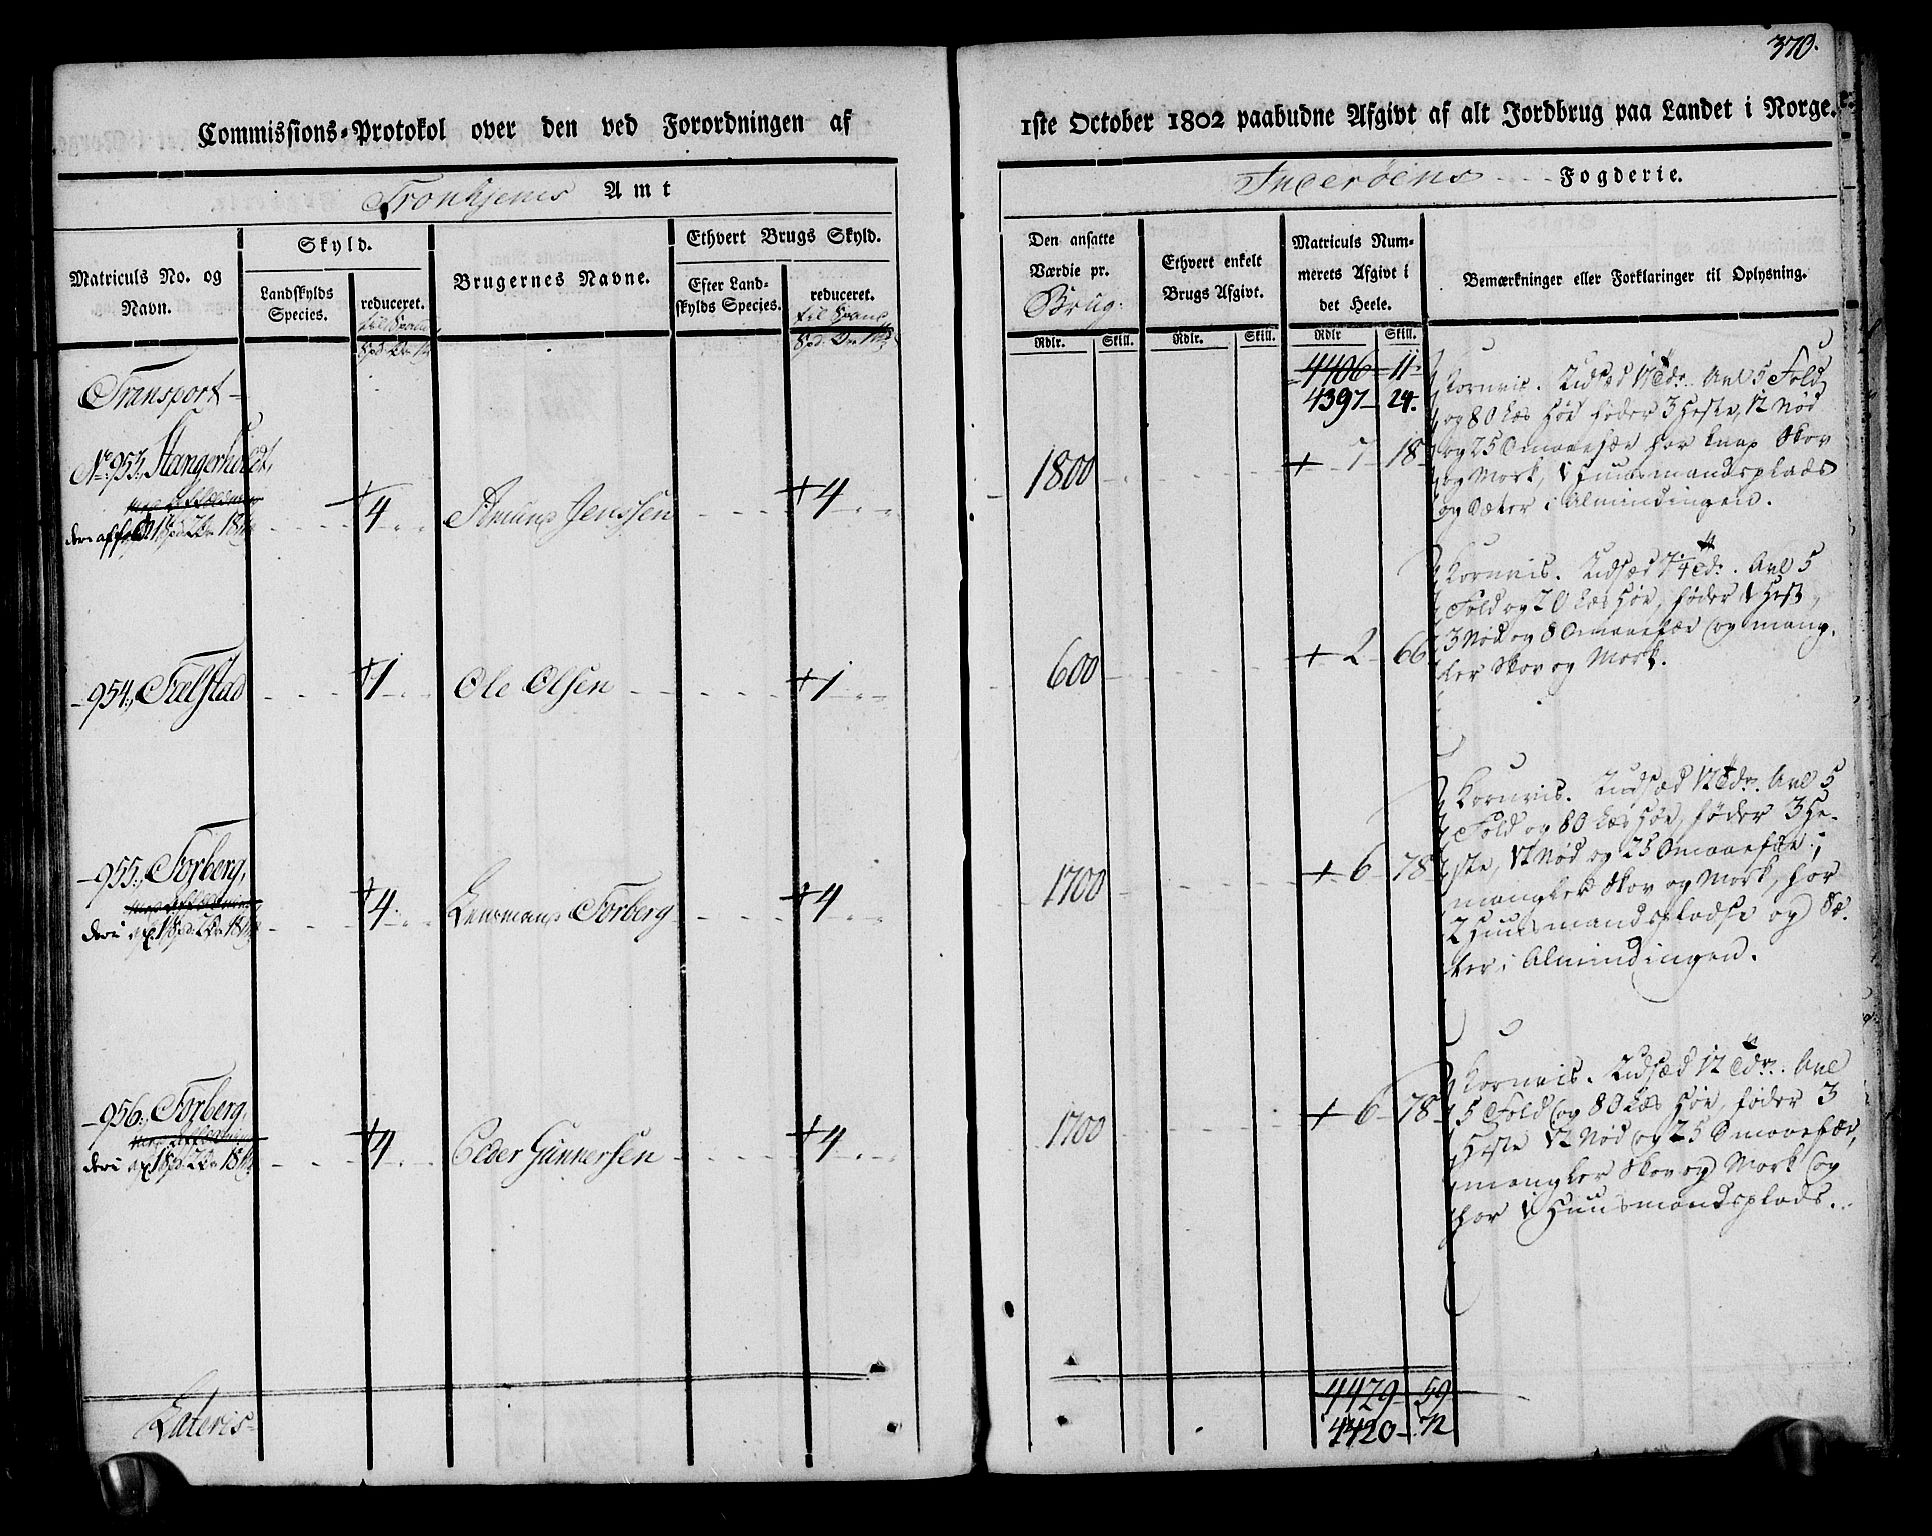 370.
Commissions-Protokol over den ved Forordningen af
1ste October 1802 paabudne Afgivt af alt Jordbrug paa Landet i Norge.
Tronhjems Amt
Inderøens Fogderie.
Matriculs No. og Navn.
Skyld.
Landskylds Species.
reduceret.
til Spand
Brugernes Navne.
Ethvert Brugs Skyld.
Efter Landskylds Species.
reduceret.
til Spand
Den ansatte Værdie pr.
Brug.
Rdlr. Skill.
Ethvert enkelt Brugs Afgivt.
Rdlr. Skill.
Matriculs Nummerets Afgivt i det Heele.
Rdlr Skill.
Bemærkninger eller Forklaringer til Oplysning.
Transport
4406 11
4397 24.
No. 953, Stangerholdt,
+4
Amund Jenssen
+4
1800
+ 7 18
Kornvis. Udsæd 12 Tdr. Avl 5 Fold
og 80 Læs Høe føder 3 Heste, 12 Nød
og 25 Smaaefæe har knap Skov
og Mark, 1 Huusmandsplads
og Sæter i Almindingen.
954, Fælstad
+1
Ole Olsen
+1
600
+ 2 66
Kornvis. Udsæd Tdr. Avl 5
Fold og 20 Læs Høe, føder 1 Hest,
3 Nød og 8 Smaaefæe og mang-
ler Skov og Mark.
955, Forberg,
+4
Lensmand Forberg
+4
1700
+ 6 78
Kornvis. Udsæd 12 Tdr. Avl 5
Fold og 80 Læs Høe, føder 3 He-
ste, 12 Nød og 25 Smaaefæe;
mangler Skov og Mark, har
2 Huusmandspladse og Sæ-
ter i Almindingen.
956, Forberg,
+4
Peder Gunnersen
+4
1700
+ 6 78
Kornvis. Udsæd 12 Tdr. Avl
5 Fold og 80 Læs Høe, føder 3
Heste 12 Nød og 25 Smaaefæe,
mangler Skov og Mark og
har 1 Huusmandsplads.
Lateris
4429 59
4420 72